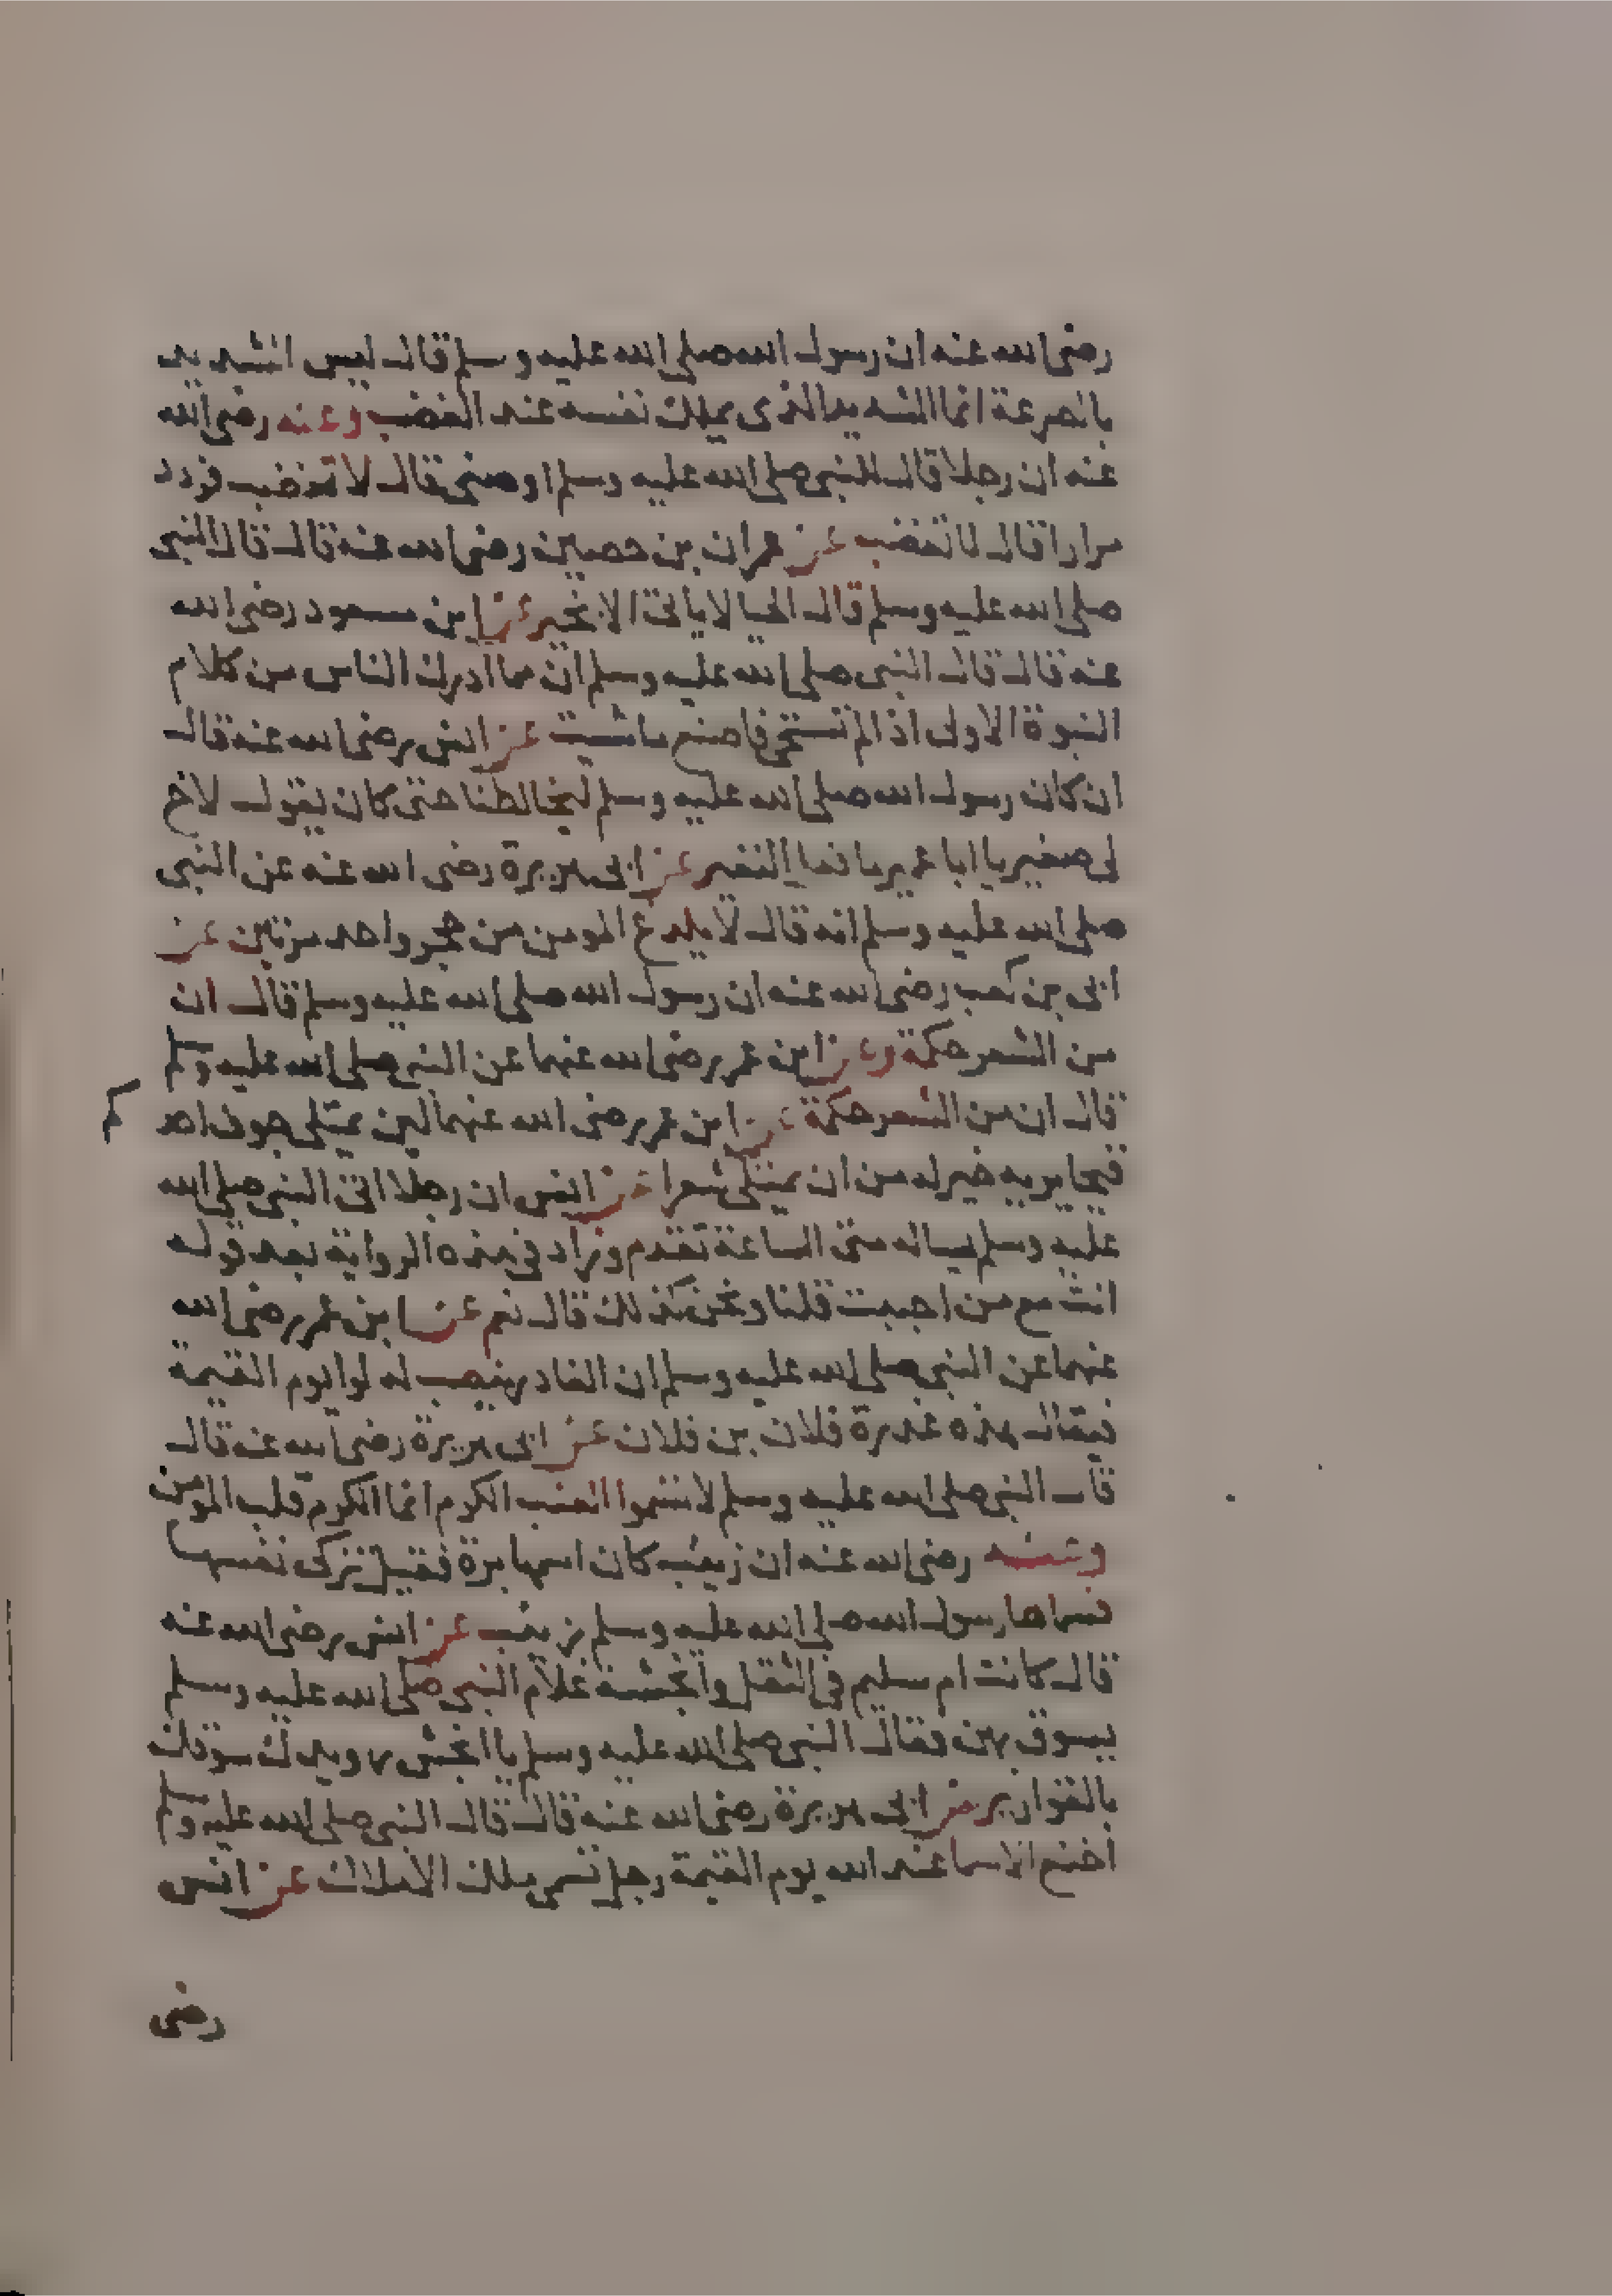 رضي الله عنه ان رسول الله صلى الله عليه وسلم قال ليس الشديد
بالصرعة انما الشديد الذي يملك نفسه عند الغضب وعنه رضي الله
عنه ان رجلا قال للنبي صلى الله عليه وسلم اوصني قال لا تغضب فردد
مرارا قال لا تغضب عن عمران بن حصين رضي الله عنه قال قال النبي
صلى الله عليه وسلم قال الحيا لا ياتي الا بخير عن ابن مسعود رضي الله
عنه قال قال النبي صلى الله عليه وسلم ان مما ادرك الناس من كلام
النبوة الاولى اذا لم تستحي فاصنع ما شيت عن انس رضي الله عنه قال
ان كان رسول الله صلى الله عليه وسلم ليخالطنا حتى كان يقول لاخ
لي صغير يا ابا عمير ما فعل النغير عن ابي هريرة رضي الله عنه عن النبي
صلى الله عليه وسلم انه قال لا يلدغ المومن من جحر واحد مرتين عن
ابي بن كعب رضي الله عنه ان رسول الله صلى الله عليه وسلم قال ان
من الشعر حكمة وعن ابن عمر رضي الله عنهما عن النبي صلى الله عليه وسلم
قال ان من الشعر حكمة عن ابن عمر رضي الله عنهما لين يمتلى جوف احدكم
قيحا يريه خير له من ان يمتلى شعرا عن انس ان رجلا اتى النبي صلى الله
عليه وسلم يساله متى الساعة تقدم وزاد في هذه الرواية بعد قوله
انت مع من احببت قلنا ونحن كذلك قال نعم عن ابن عمر رضي الله
عنهما عن النبي صلى الله عليه وسلم ان الغادر ينصب له لوا يوم القيمة
فيقال هذه غدرة فلان بن فلان عن ابي هريرة رضي الله عنه قال
قال النبي صلى الله عليه وسلم لا تسموا العنب الكرم انما الكرم قلب المومن
وعنه رضي الله عنه ان زينب كان اسمها برة فقيل تزكى نفسها
فسماها رسول الله صلى الله عليه وسلم زينب عن انس رضي الله عنه
قال كانت ام سليم في الثقل وانجشة غلام النبي صلى الله عليه وسلم
يسوق بهن فقال النبي صلى الله عليه وسلم يا انجش رويدك سوقك
بالقوارير عن ابي هريرة رضي الله عنه قال قال النبي صلى الله عليه وسلم
اخنع الاسما عند الله يوم القيمة رجل تسمى ملك الاملاك عن انس
رضي